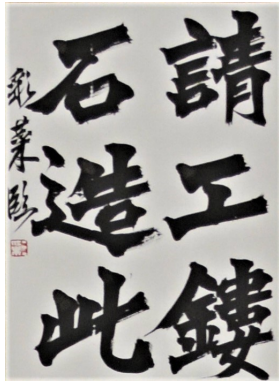 請工鏤
石造此
彩葉臨